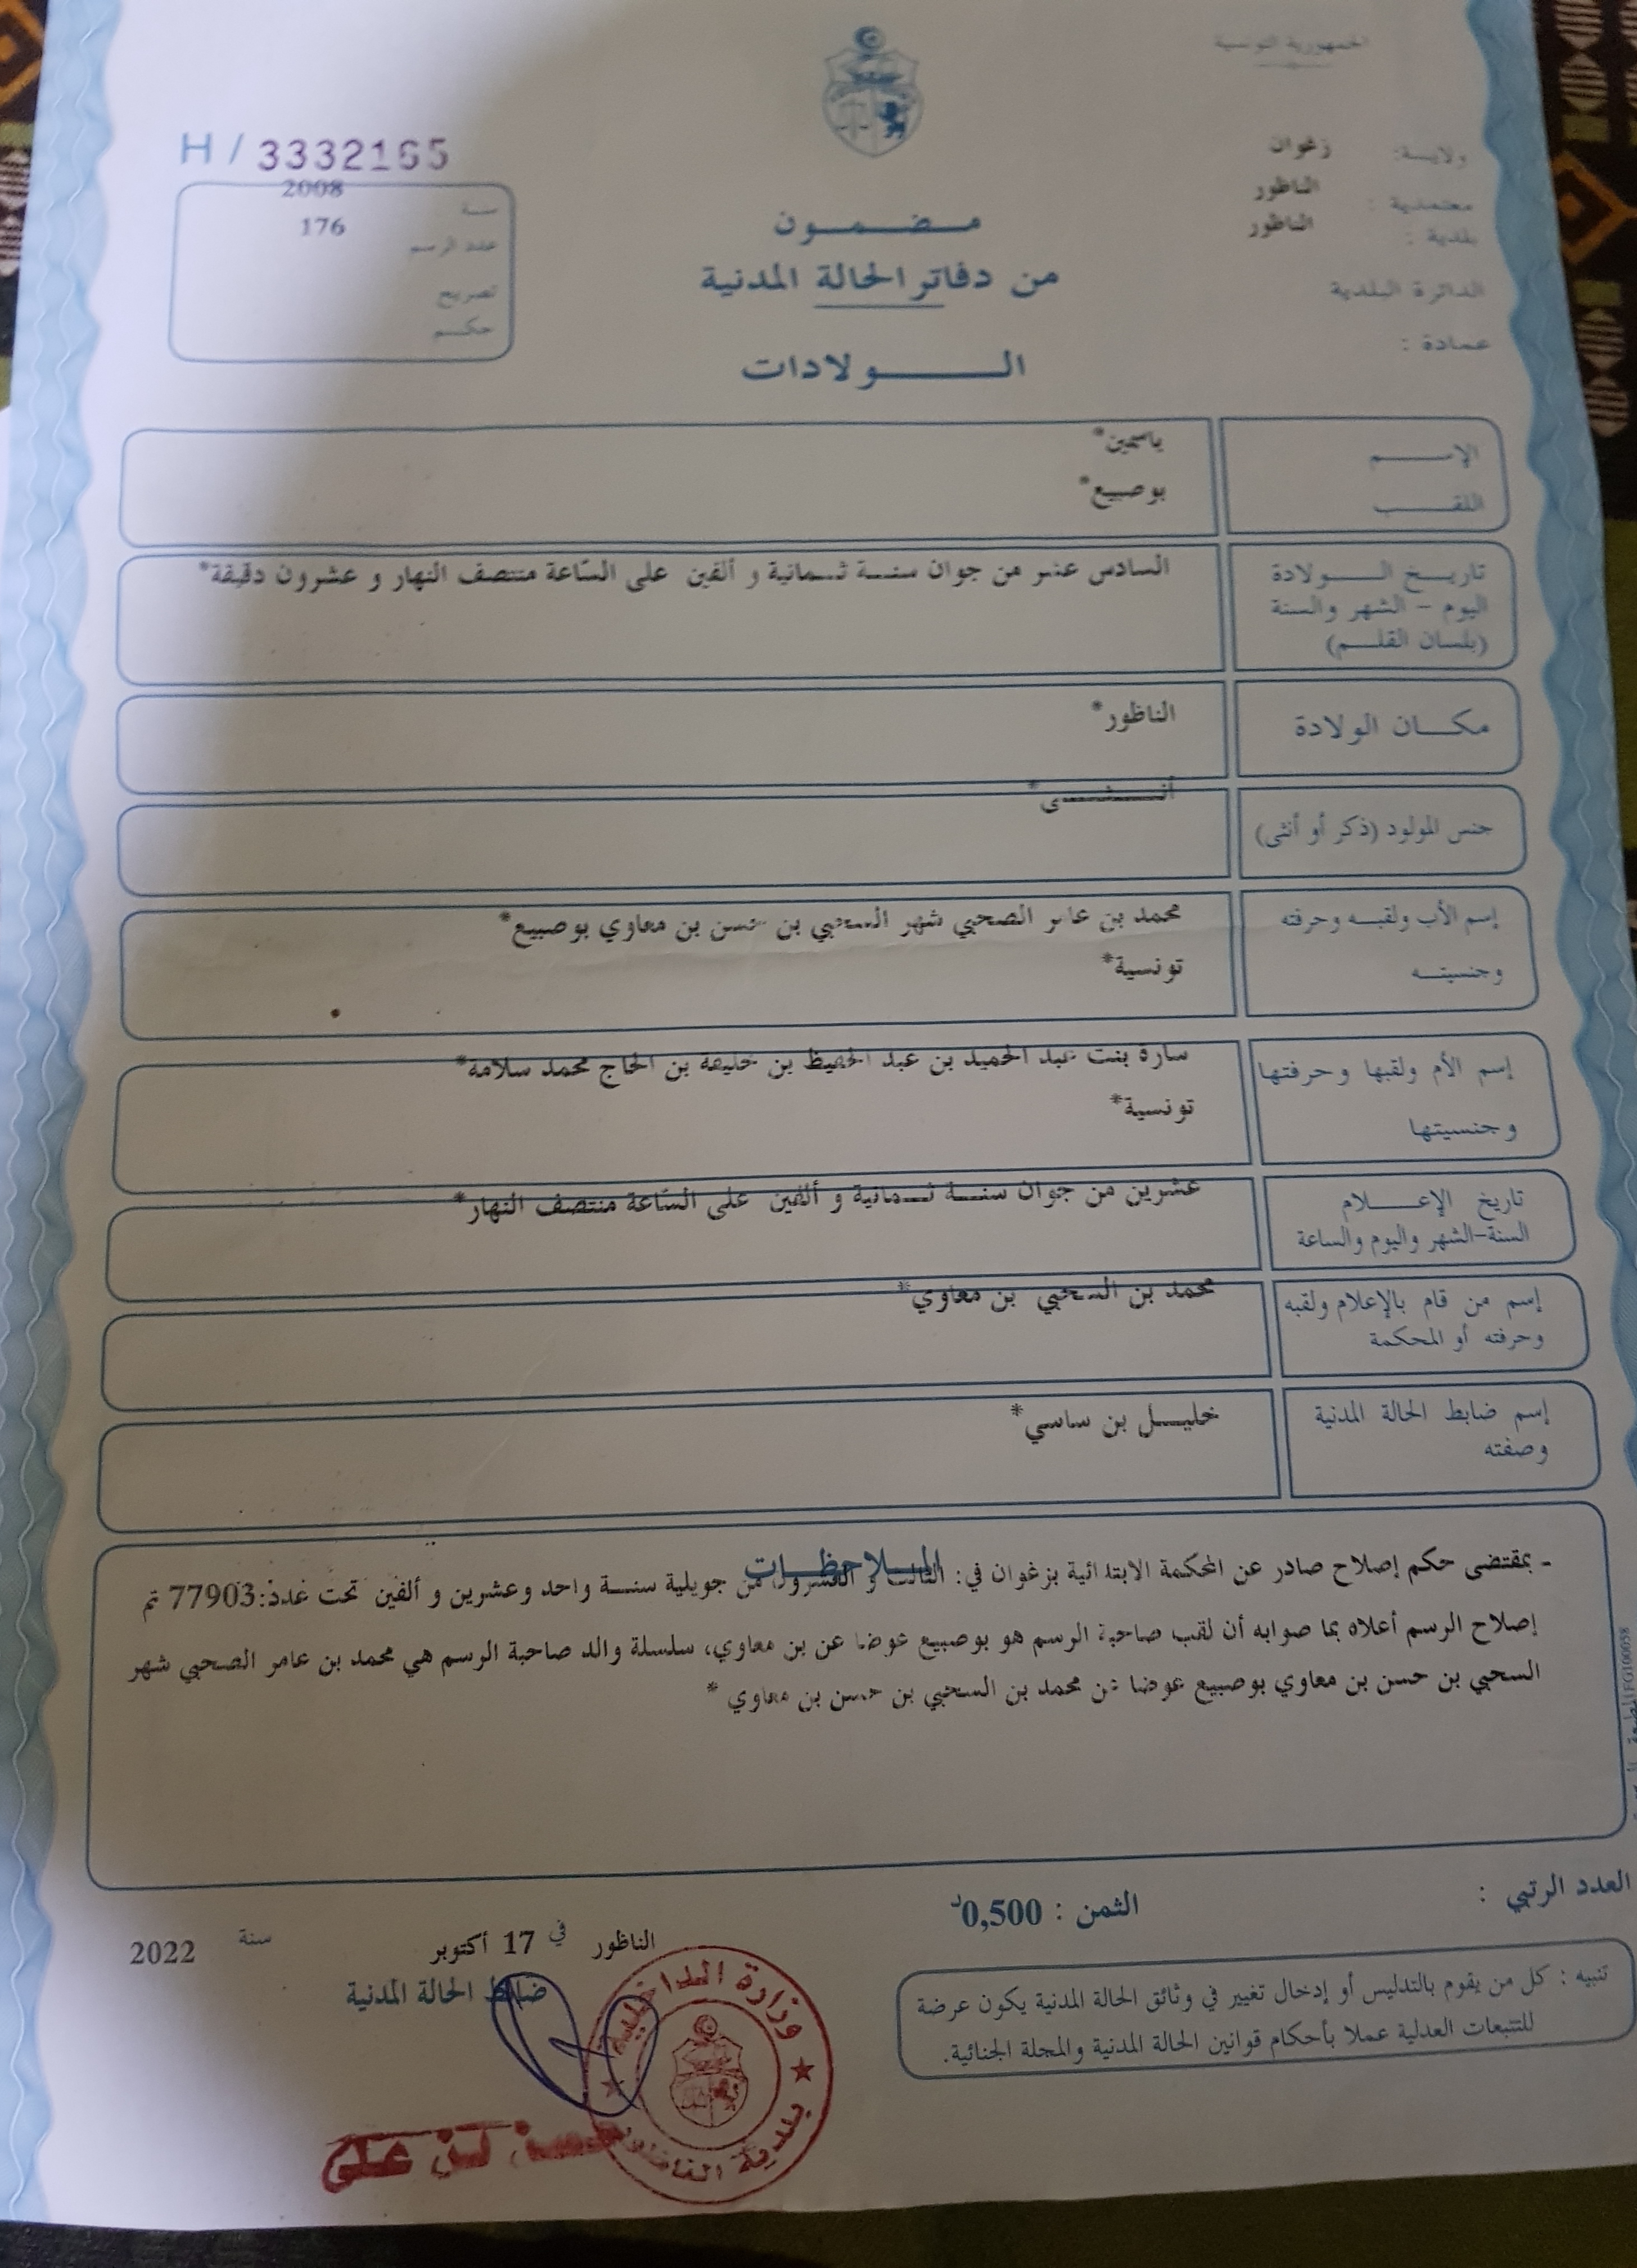 الجمهورية التونسية
ولاية: زغوان
معتمدية : الناظور
بلدية : الناظور
الدائرة البلدية
عمادة :
H / 3332165
سنة 2008
عدد الرسم 176
تصريح
حكم
مضمون
من دفاتر الحالة المدنية
الولادات
الإسم ياسمين*
اللقب بوصبيع*
تاريخ الولادة السادس عشر من جوان سنة ثمانية و ألفين على السّاعة منتصف النهار و عشرون دقيقة*
اليوم - الشهر والسنة
(بلسان القلم)
مكان الولادة الناظور*
جنس المولود (ذكر أو أنثى) أنثى*
إسم الأب ولقبه وحرفته محمد بن عامر الصحبي شهر السحبي بن حسن بن معاوي بوصبيع*
وجنسيته تونسية*
إسم الأم ولقبها وحرفتها سارة بنت عبد الحميد بن عبد الحفيظ بن خليفة بن الحاج محمد سلامة*
وجنسيتها تونسية*
تاريخ الإعلام عشرين من جوان سنة ثمانية و ألفين على السّاعة منتصف النهار*
السنة-الشهر واليوم والساعة
إسم من قام بالإعلام ولقبه محمد بن السحبي بن معاوي*
وحرفته أو المحكمة
إسم ضابط الحالة المدنية خليل بن ساسي*
وصفته
الملاحظات
- بمقتضى حكم إصلاح صادر عن المحكمة الابتدائية بزغوان في: الثالث و العشرون من جويلية سنة واحد وعشرين و ألفين تحت عدد:77903 تم
إصلاح الرسم أعلاه بما صوابه أن لقب صاحبة الرسم هو بوصبيع عوضا عن بن معاوي، سلسلة والد صاحبة الرسم هي محمد بن عامر الصحبي شهر
السحبي بن حسن بن معاوي بوصبيع عوضا عن محمد بن السحبي بن حسن بن معاوي *
العدد الرتبي :
الثمن : 0,500د
الناظور في 17 أكتوبر سنة 2022
ضابط الحالة المدنية
تنبيه : كل من يقوم بالتدليس أو إدخال تغيير في وثائق الحالة المدنية يكون عرضة
للتتبعات العدلية عملا بأحكام قوانين الحالة المدنية والمجلة الجنائية.
وزارة الداخلية
بلدية الناظور
حسن بن علي